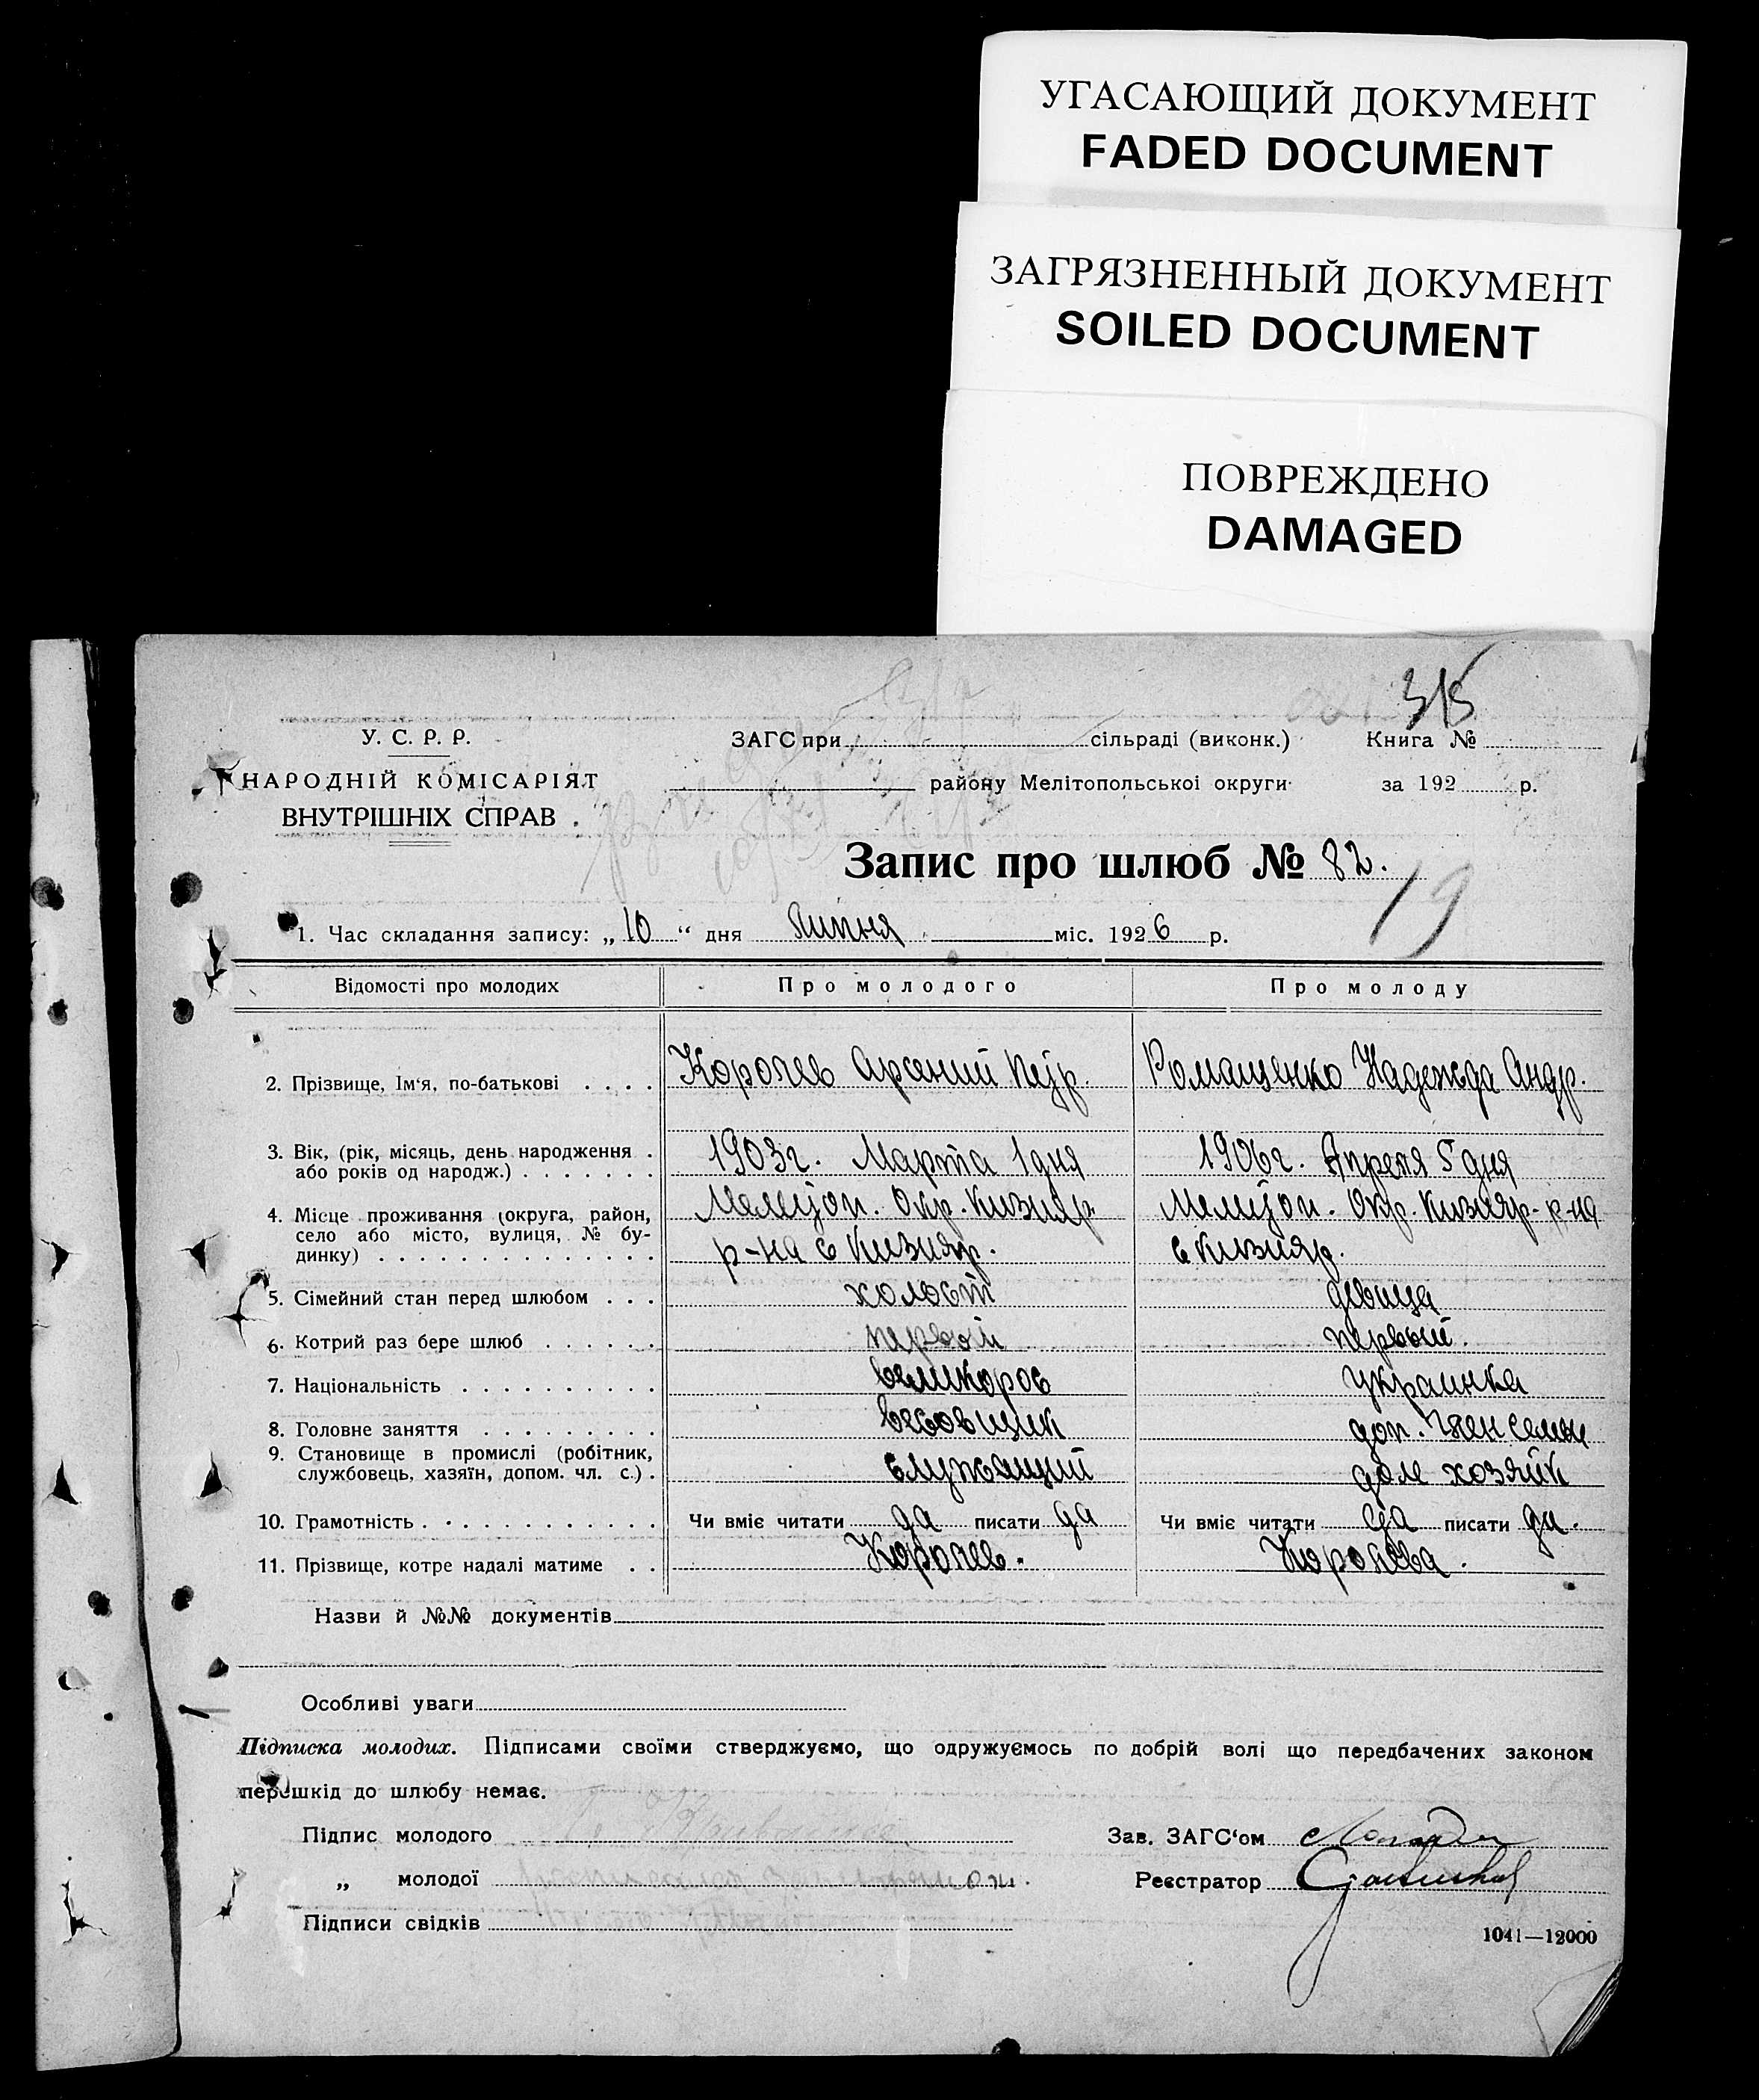 УГАСАЮЩИЙ ДОКУМЕНТ
FADED DOCUMENT
ЗАГРЯЗНЕННЫЙ ДОКУМЕНТ
SOILED DOCUMENT
ПОВРЕЖДЕНО
DAMAGED
У. С. Р. Р.
НАРОДНІЙ КОМІСАРІЯТ
ВНУТРІШНІХ СПРАВ
ЗАГС при сільраді (виконк.) Книга №
району Мелітопольської округи за 192 р.
Запис про шлюб № 82.
19
1. Час складання запису: „10“ дня Липня міс. 1926 р.
Відомості про молодих Про молодого Про молоду
2. Прізвище, Ім‘я, по-батькові . . . . Арсений Ромащенко Надежда Андр.
3. Вік, (рік, місяць, день народження . 1903г. Марта 1 дня 1906г. Апреля 5 дня
або років од народж.) . . . . . . .
4. Місце проживання (округа, район, Мелитоп. Окр. Кизияр. Мелитоп. Окр. Кизияр. р-на
село або місто, вулиця, № бу-
динку) . . . . . . . . . . . . . р-на с Кизияр. с Кизияр.
5. Сімейний стан перед шлюбом . . . холост девица
6. Котрий раз бере шлюб . . . . . . первый первый.
7. Національність . . . . . . . . . . великорос украинка
8. Головне заняття . . . . . . . . . весовщик доп. член семьи
9. Становище в промислі (робітник,
службовець, хазяїн, допом. чл. с.) . служащий дом хозяйк
10. Грамотність . . . . . . . . . . . . Чи вміє читати да писати да Чи вміє читати да писати да.
11. Прізвище, котре надалі матиме . .
Назви й №№ документів
Особливі уваги
Підписка молодих. Підписами своїми стверджуємо, що одружуємось по добрій волі що передбачених законом
перешкід до шлюбу немає.
Підпис молодого Зав. ЗАГС‘ом
„ молодої Реєстратор
Підписи свідків
1041—12000